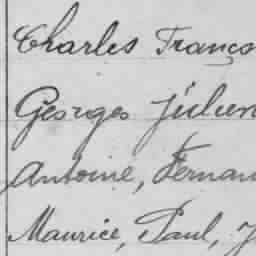 Charles Franço
Georges Julien
Antoine, Fernan
Maurice, Paul, J